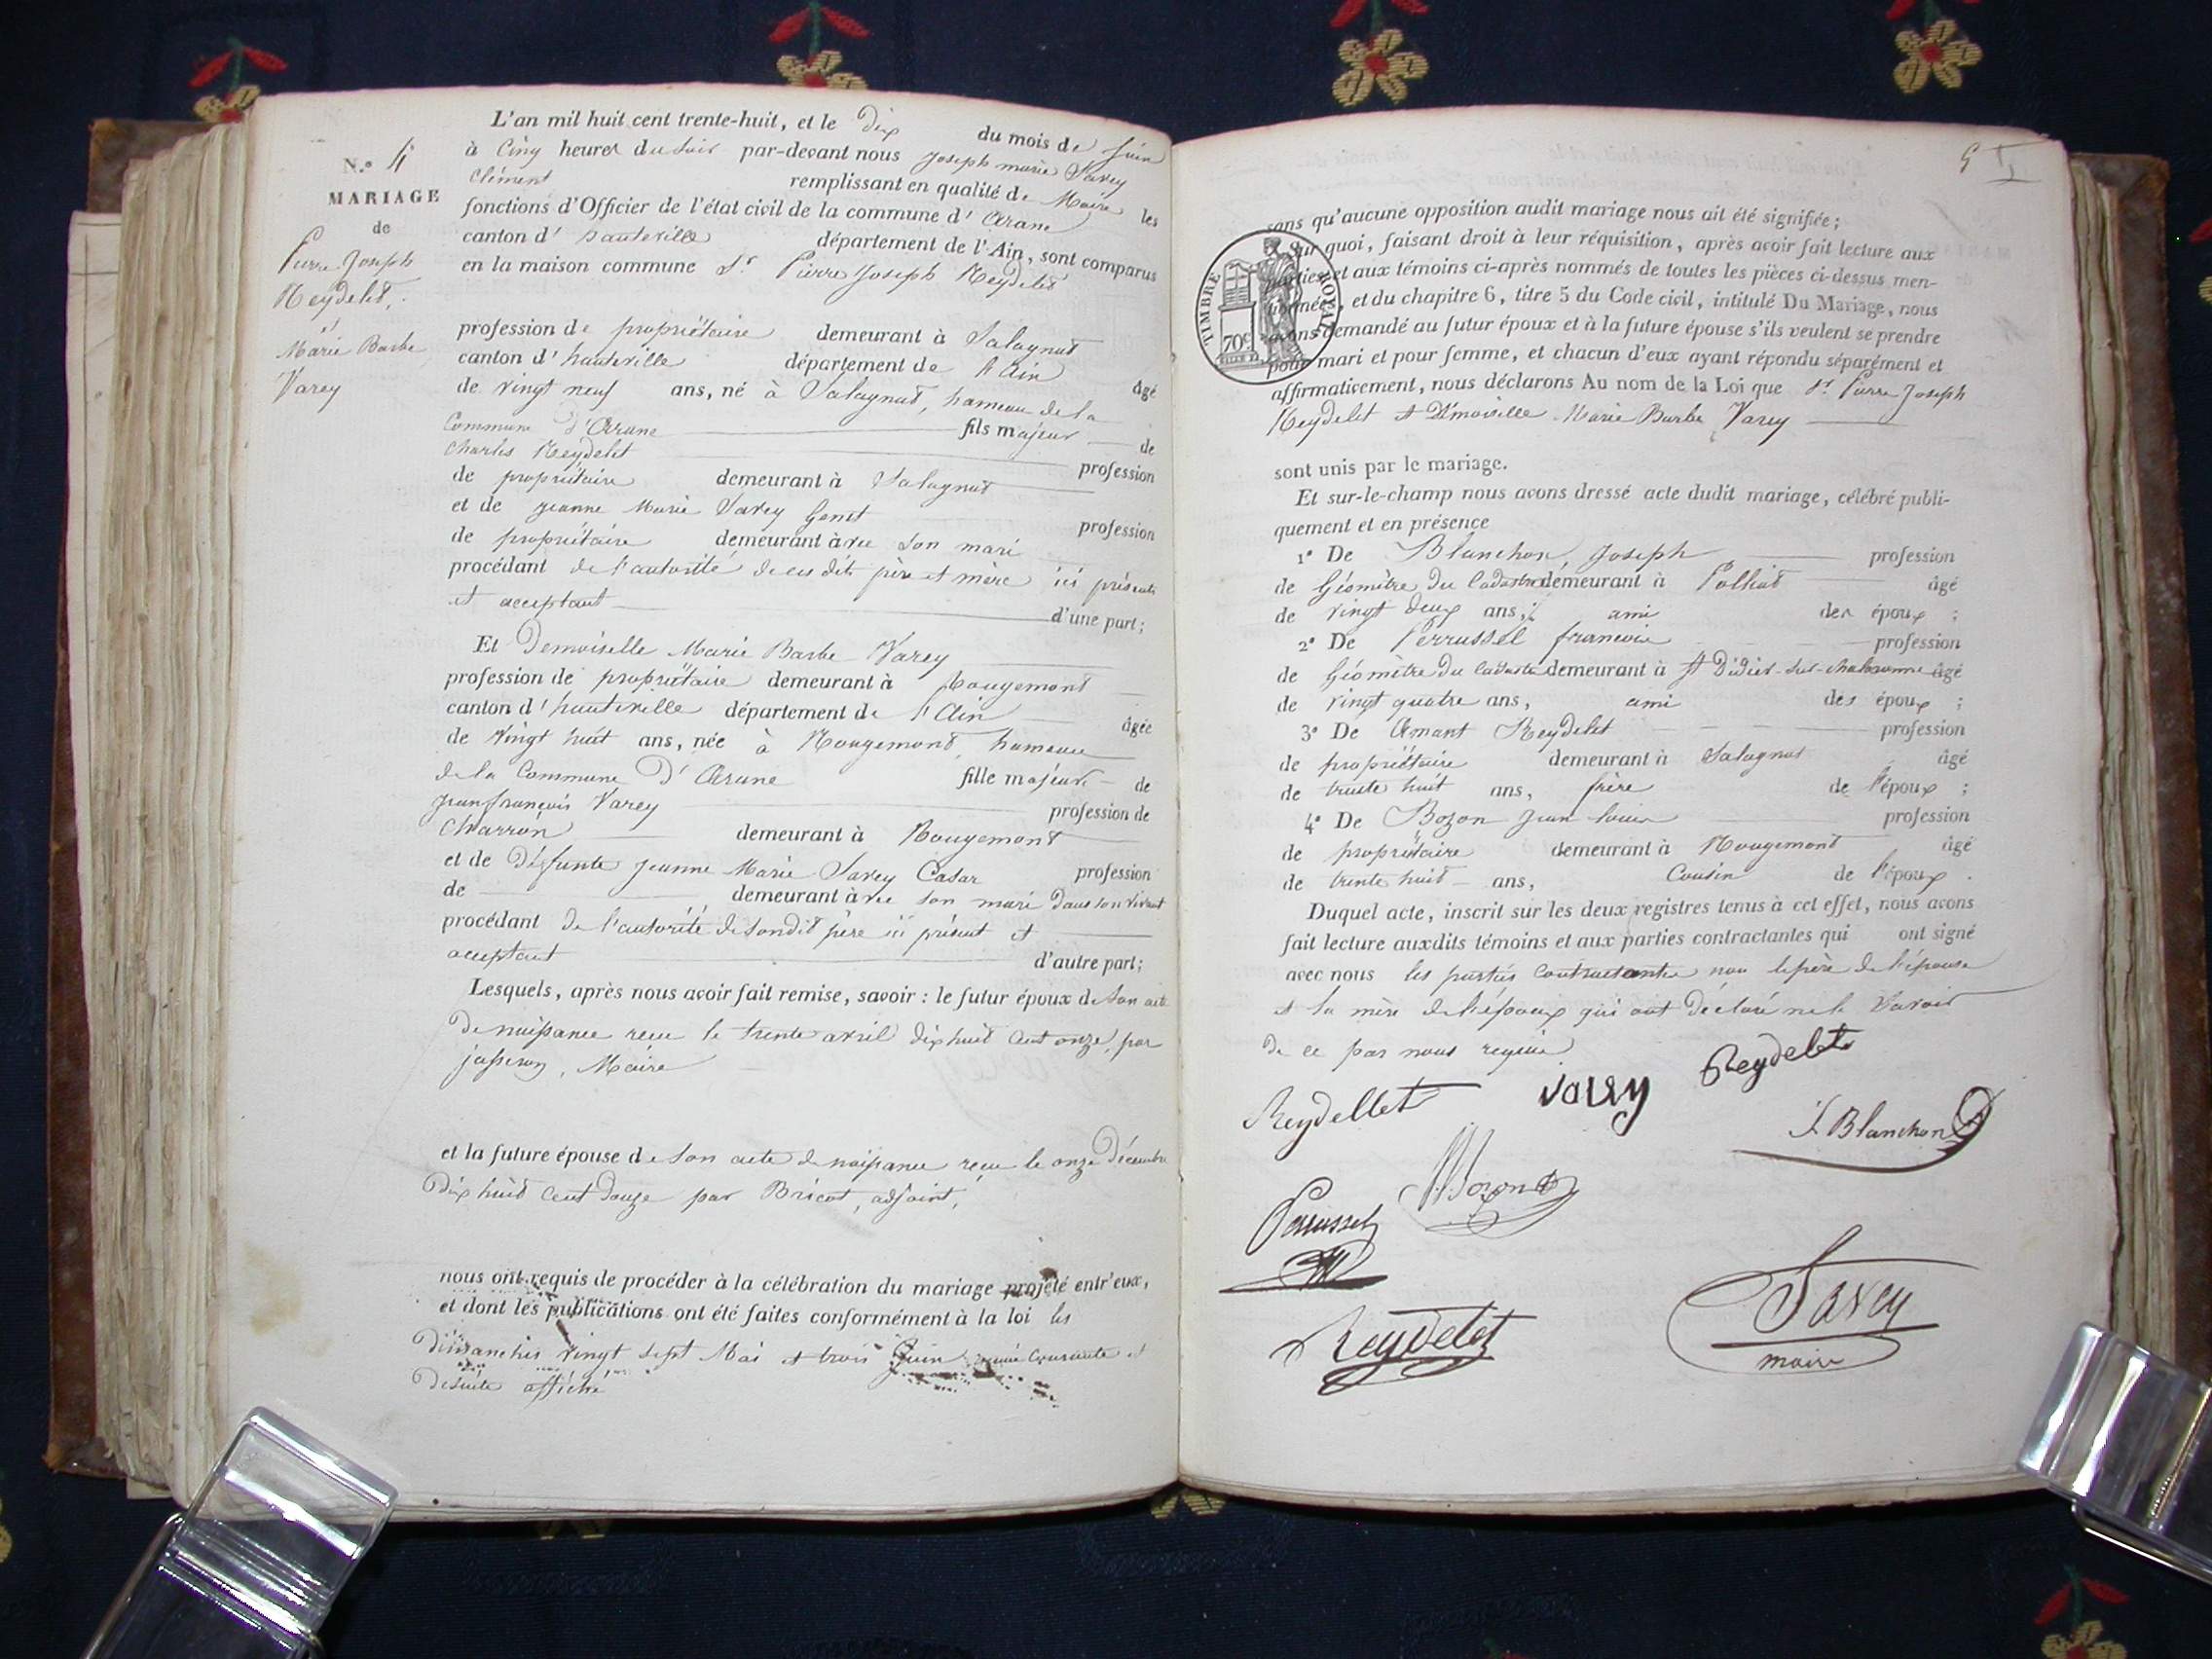 L'an mil huit cent trente-huit, et le dix du mois de juin
à cinq heures du soir par-devant nous joseph marie Savey
Clément remplissant en qualité de Maire les
fonctions d'Officier de l'état civil de la commune d' Arane
canton d' hauteville département de l'Ain, sont comparus
en la maison commune Sr Pierre Joseph Reydelet
N.º 4
MARIAGE
de
Pierre Joseph
Reydelet,
Marie Barbe
Varey
profession de propriétaire demeurant à Salagnat
canton d' hauteville département de l'Ain âgé
de vingt neuf ans, né à Salagnat, hameau de la
Commune d'Arane fils majeur de
Charles Reydelet profession
de propriétaire demeurant à Salagnat
et de jeanne Marie Savey Genet profession
de propriétaire demeurant avec son mari
procédant de l'autorité de ces dits père et mère ici présents
et acceptant d'une part;
Et Demoiselle Marie Barbe Varey
profession de propriétaire demeurant à Rougemont
canton d' hauteville département de l'Ain âgée
de vingt huit ans, née à Rougemont, hameau
de la Commune D'Arane fille majeure de
jean françois Varey profession de
Charron demeurant à Rougemont
et de Défunte jeanne Marie Savey Casar profession
de demeurant avec son mari Dans son vivant
procédant de l'autorité de sondit père ici présent et
acceptant d'autre part;
Lesquels, après nous avoir fait remise, savoir: le futur époux de son acte
De naissance reçu le trente avril dix huit cent onze, par
, Maire
et la future épouse de son acte de naissance reçu le onze Décembre
Dix huit cent douze par Bricot, adjoint,
nous ont requis de procéder à la célébration du mariage projeté entr'eux,
et dont les publications ont été faites conformément à la loi les
dimanches vingt sept Mai et trois Juin année courante et
De suite affiché
5
TIMBRE ROYAL
70c
sans qu'aucune opposition audit mariage nous ait été signifiée;
Sur quoi, faisant droit à leur réquisition, après avoir fait lecture aux
parties et aux témoins ci-après nommés de toutes les pièces ci-dessus men-
tionnées, et du chapitre 6, titre 5 du Code civil, intitulé Du Mariage, nous
avons demandé au futur époux et à la future épouse s'ils veulent se prendre
pour mari et pour femme, et chacun d'eux ayant répondu séparément et
affirmativement, nous déclarons Au nom de la Loi que Sr. Pierre Joseph
Reydelet et Dmoiselle Marie Barbe Varey
sont unis par le mariage.
Et sur-le-champ nous avons dressé acte dudit mariage, célébré publi-
quement et en présence
1º De Blanchon, Joseph profession
de Géomètre du Cadastre demeurant à Polliat âgé
de vingt deux ans, ami des époux ;
2º De Perrussel françois profession
de Géomètre du Cadastre demeurant à St Didier-sur-chalaronne âgé
de vingt quatre ans, ami des époux ;
3º De Amant Reydelet profession
de propriétaire demeurant à Salagnat âgé
de trente huit ans, frère de l'époux ;
4º De Bozon jean louis profession
de propriétaire demeurant à Rougemont âgé
de trente huit ans, Cousin de l'époux .
Duquel acte, inscrit sur les deux registres tenus à cet effet, nous avons
fait lecture auxdits témoins et aux parties contractantes qui ont signé
avec nous les parties contractantes non le père de l'épouse
et la mère de l'époux qui ont déclaré ne le savoir
de ce par nous requis
Reydellet varey Reydelet
J. Blanchon
Bozon
Perrussel
Reydelet
Savey
maire